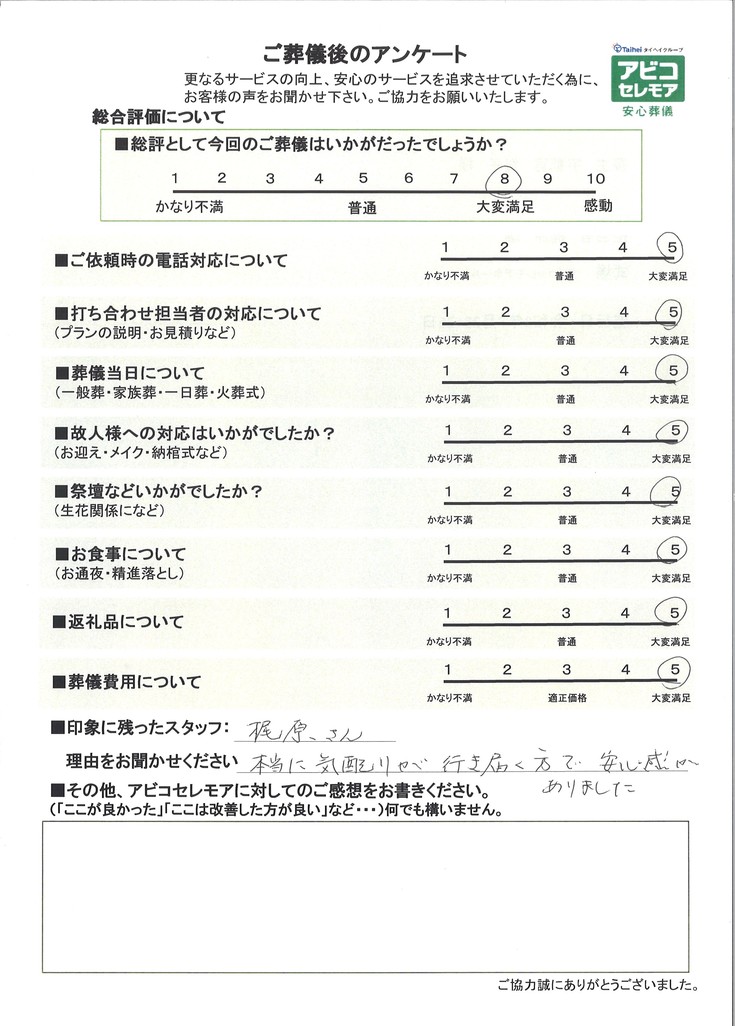 ご葬儀後のアンケート
Taihei タイヘイグループ
アビコ
セレモア
安心葬儀
更なるサービスの向上、安心のサービスを追求させていただく為に、
お客様の声をお聞かせ下さい。ご協力をお願いいたします。
総合評価について
■総評として今回のご葬儀はいかがだったでしょうか?
1 2 3 4 5 6 7 8 9 10
かなり不満 普通 大変満足 感動
■ご依頼時の電話対応について
1 2 3 4 5
かなり不満 普通 大変満足
■打ち合わせ担当者の対応について
(プランの説明・お見積りなど)
1 2 3 4 5
かなり不満 普通 大変満足
■葬儀当日について
(一般葬・家族葬・一日葬・火葬式)
1 2 3 4 5
かなり不満 普通 大変満足
■故人様への対応はいかがでしたか?
(お迎え・メイク・納棺式など)
1 2 3 4 5
かなり不満 普通 大変満足
■祭壇などいかがでしたか?
(生花関係になど)
1 2 3 4 5
かなり不満 普通 大変満足
■お食事について
(お通夜・精進落とし)
1 2 3 4 5
かなり不満 普通 大変満足
■返礼品について
1 2 3 4 5
かなり不満 普通 大変満足
■葬儀費用について
1 2 3 4 5
かなり不満 適正価格 大変満足
■印象に残ったスタッフ: 梶原、さん
理由をお聞かせください 本当に気配りやが行き届く方で 安心感が
ありました
■その他、アビコセレモアに対してのご感想をお書きください。
(「ここが良かった」「ここは改善した方が良い」など・・・)何でも構いません。
ご協力誠にありがとうございました。